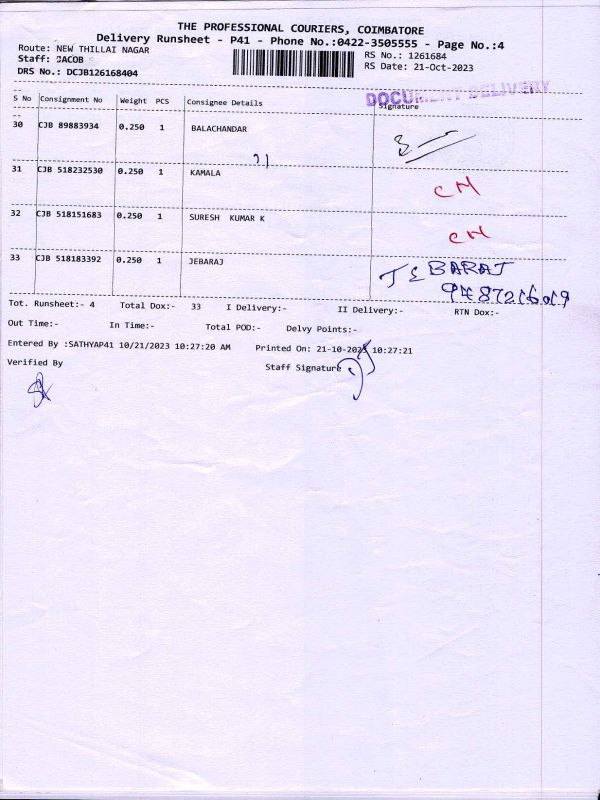 THE PROFESSIONAL COURIERS, COIMBATORE
Delivery Runsheet - P41 - Phone No.:0422-3505555 - Page No.:4
Route: NEW THILLAI NAGAR
Staff: JACOB
DRS No.: DCJB126168404
RS No.: 1261684
RS Date: 21-Oct-2023
DOCUMENT DELIVERY
S No Consignment No Weight PCS Consignee Details Signature
30 CJB 89883934 0.250 1 BALACHANDAR
31 CJB 518232530 0.250 1 KAMALA CM
32 CJB 518151683 0.250 1 SURESH KUMAR K CM
33 CJB 518183392 0.250 1 JEBARAJ JEBARAJ
Tot. Runsheet:- 4 Total Dox:- 33 I Delivery:- II Delivery:- RTN Dox:-
Out Time:- In Time:- Total POD:- Delvy Points:-
Entered By :SATHYAP41 10/21/2023 10:27:20 AM Printed On: 21-10-2023 10:27:21
Verified By Staff Signature